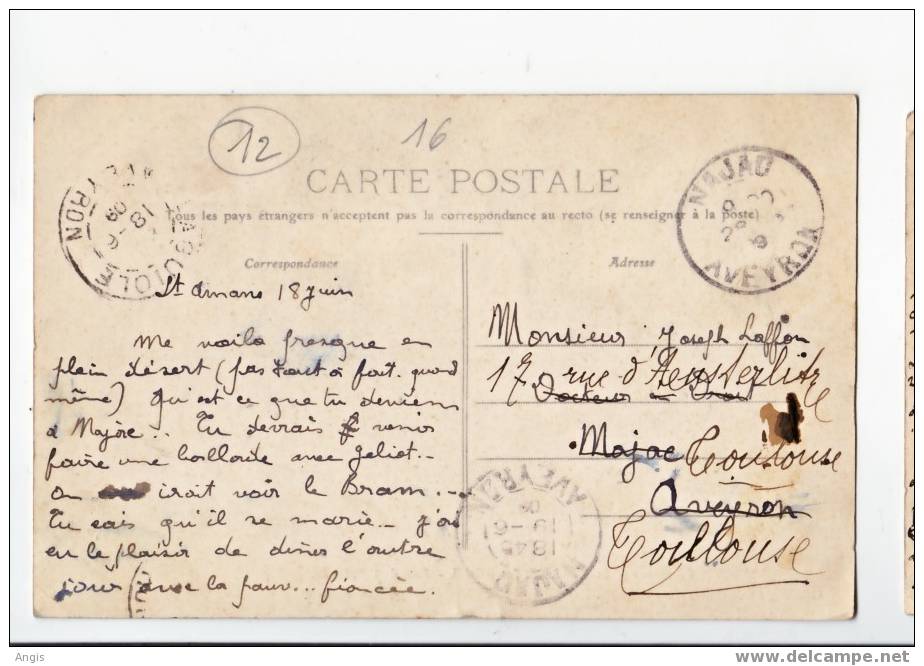 12
16
CARTE POSTALE
Tous les pays étrangers n'acceptent pas la correspondance au recto (se renseigner à la poste)
NAJAC
AVEYRON
Correspondance
Adresse
St Amans 18 Juin
Me voilà presque en
plein désert (pas tout à fait quand
même) Qu'est ce que tu deviens
à Najac.. Tu devrais venir
faire une ballade avec Jeliot..
on irait voir le Bram...
Tu sais qu'il se marie.. j'ai
eu le plaisir de diner l'autre
jour avec la fauv... fiancée.
Monsieur Joseph Laffon
17 rue d'Austerlitz
Docteur en Droit
Najac Toulouse
Aveyron
Toulouse
NAJAC
18 45
19 - 6
AVEYRON
Angis
www.delcampe.net